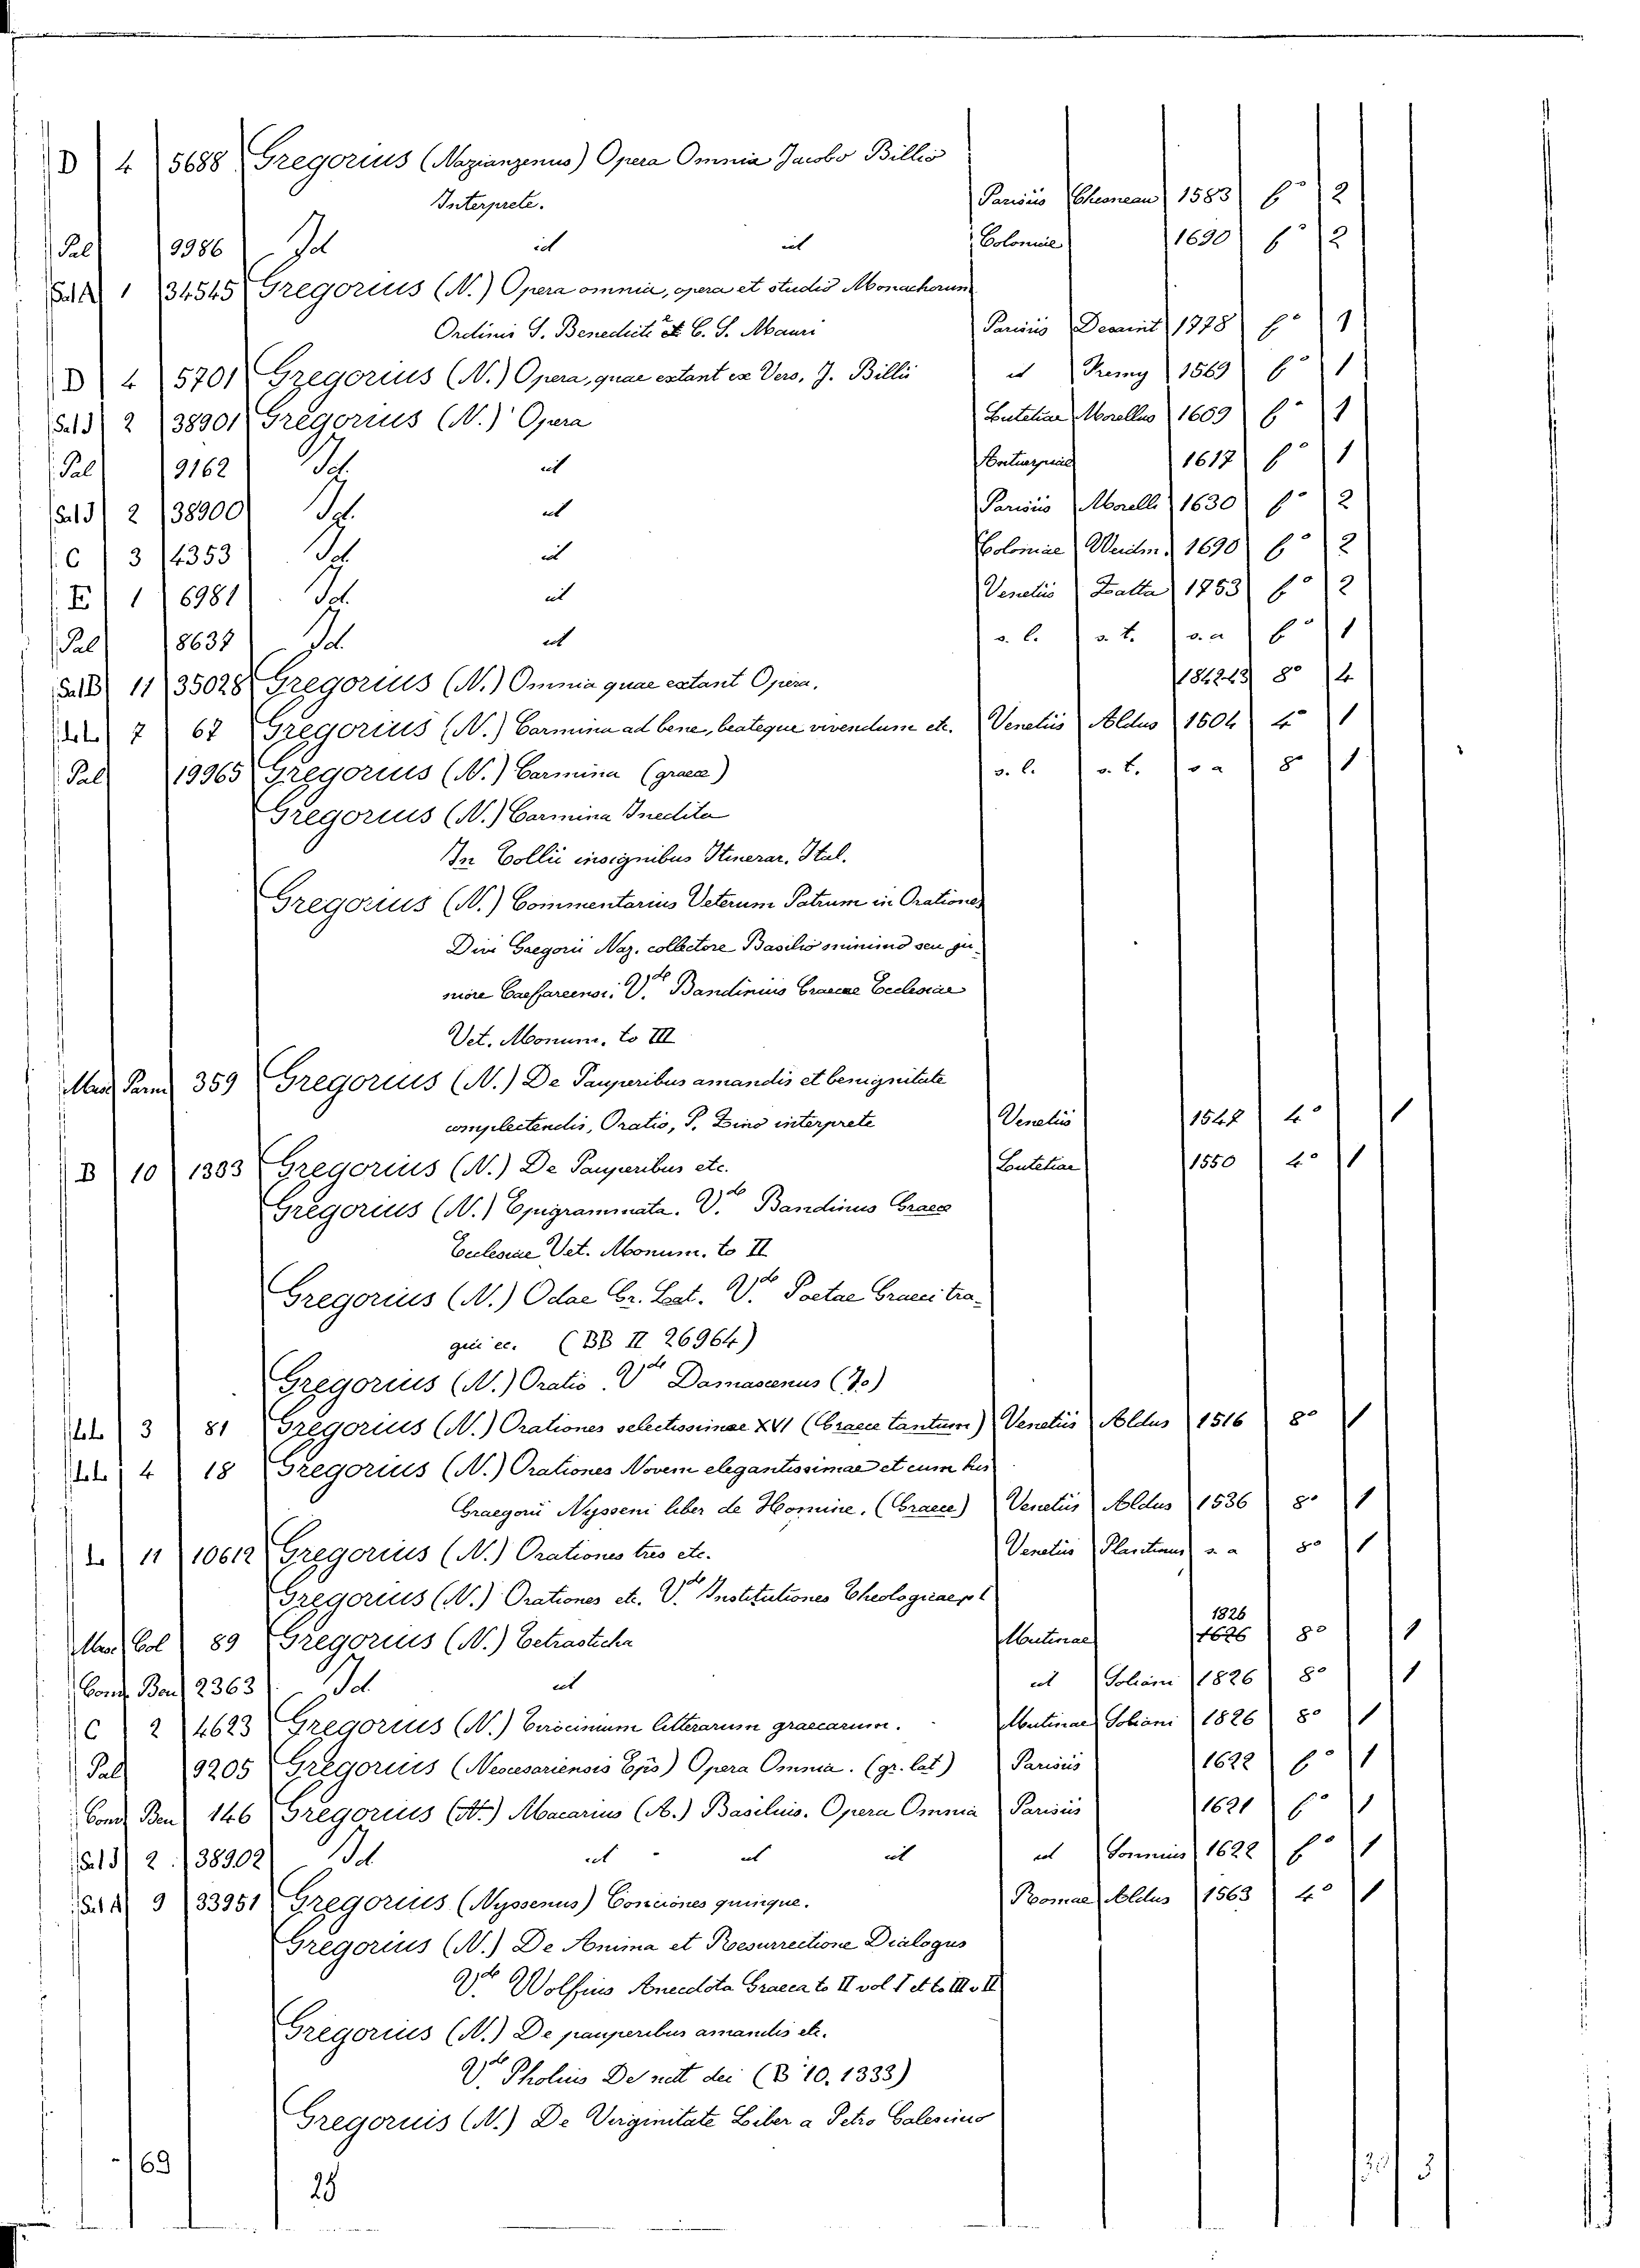 D 4 5688 Gregorius (Nazianzenus) Opera Omnia Jacobo Billio
Interprete. Parisiis Chesneau 1583 fº 2
Pal 9986 Id id id Coloniae 1690 fº 2
Sal A 1 34545 Gregorius (N.) Opera omnia, opera et studio Monachorum
Ordinis S. Benedicti et C. S. Mauri Parisiis Desaint 1778 fº 1
D 4 5701 Gregorius (N.) Opera, quae extant ex Vers. J. Billii id Premy 1569 fº 1
Sal J 2 38901 Gregorius (N.) Opera Lutetiae Morellus 1609 fº 1
Pal 9162 Id. id Antuerpiae 1617 fº 1
Sal J 2 38900 Id. id Parisiis Morelli 1630 fº 2
C 3 4353 Id. id Coloniae Weidm. 1690 fº 2
E 1 6981 Id. id Venetiis Zatta 1753 fº 2
Pal 8637 Id. id s. l. s. t. s. a fº 1
Sal B 11 35028 Gregorius (N.) Omnia quae extant Opera. 1842-43 8º 4
7 67 Gregorius (N.) Carmina ad bene, beateque vivendum etc. Venetiis Aldus 1504 4º 1
Pal 19965 Gregorius (N.) Carmina (graece) s. l. s. t. s a 8º 1
Gregorius (N.) Carmina Inedita
In Collii insignibus Itinerar. Ital.
Gregorius (N.) Commentarius Veterum Patrum in Orationes
Divi Gregorii Naz. collectore Basilio minimo seu ju-
niore Caesareensi. V.de Bandinius Graecae Ecclesiae
Vet. Monum. to III
Masc Parm 359 Gregorius (N.) De Pauperibus amandis et benignitate
complectendis, Oratio, P. Zino interprete Venetiis 1547 4º 1
B 10 1333 Gregorius (N.) De Pauperibus etc. Lutetiae 1550 4º 1
Gregorius (N.) Epigrammata. V.de Bandinus Graece
Ecclesiae Vet. Monum. to II
Gregorius (N.) Odae Gr. Lat. V.de Poetae Graeci tra-
gici ec. (BB II 26964)
Gregorius (N.) Oratio. V.de Damascenus (Jo)
3 81 Gregorius (N.) Orationes selectissimae XVI (Graece tantum) Venetiis Aldus 1516 8º 1
4 18 Gregorius (N.) Orationes Novem elegantissimae et cum his
Graegorii Nysseni liber de Homine. (Graece) Venetiis Aldus 1536 8º 1
L 11 10612 Gregorius (N.) Orationes tres etc. Venetiis s. a 8º 1
Gregorius (N.) Orationes etc. V.de Institutiones Theologicae
Masc Col 89 Gregorius (N.) Tetrasticha Mutinae 1826 1626 8º 1
Conv. Ben 2363 Id id id Soliani 1826 8º 1
C 2 4623 Gregorius (N.) Tirocinium litterarum graecarum. Mutinae Soliani 1826 8º 1
Pal 9205 Gregorius (Neocesariensis Epis) Opera Omnia. (gr. lat) Parisiis 1622 fº 1
Conv Ben 146 Gregorius (N.) Macarius (A.) Basilius. Opera Omnia Parisiis 1621 fº 1
Sal J 2. 38902 Id id id id id Sonnius 1622 fº 1
Sal A 9 33951 Gregorius (Nyssenus) Conciones quinque. Romae Aldus 1563 4º 1
Gregorius (N.) De Anima et Resurrectione Dialogus
V.de Wolfius Anecdota Graeca to II vol I et to III v II
Gregorius (N.) De pauperibus amandis etc.
V.de Pholius De nat dei (B 10. 1333)
Gregorius (N.) De Virginitate Liber a Petro Galesinio
69 25 30 5